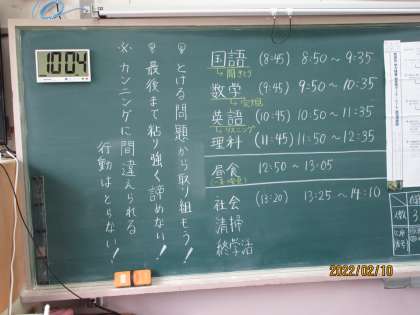 10:04
国語 (8:45) 8:50～9:35
→聞きとり
数学 (9:45) 9:50～10:35
英語 (10:45) 10:50～11:35
→リスニング
理科 (11:45) 11:50～12:35
昼食 12:50～13:05
社会 (13:20) 13:25～14:10
清掃
終学活
♀とける問題から取り組もう!
♀最後まで粘り強く諦めない!
※カンニングに間違えられる
行動はとらない!
2022/02/10